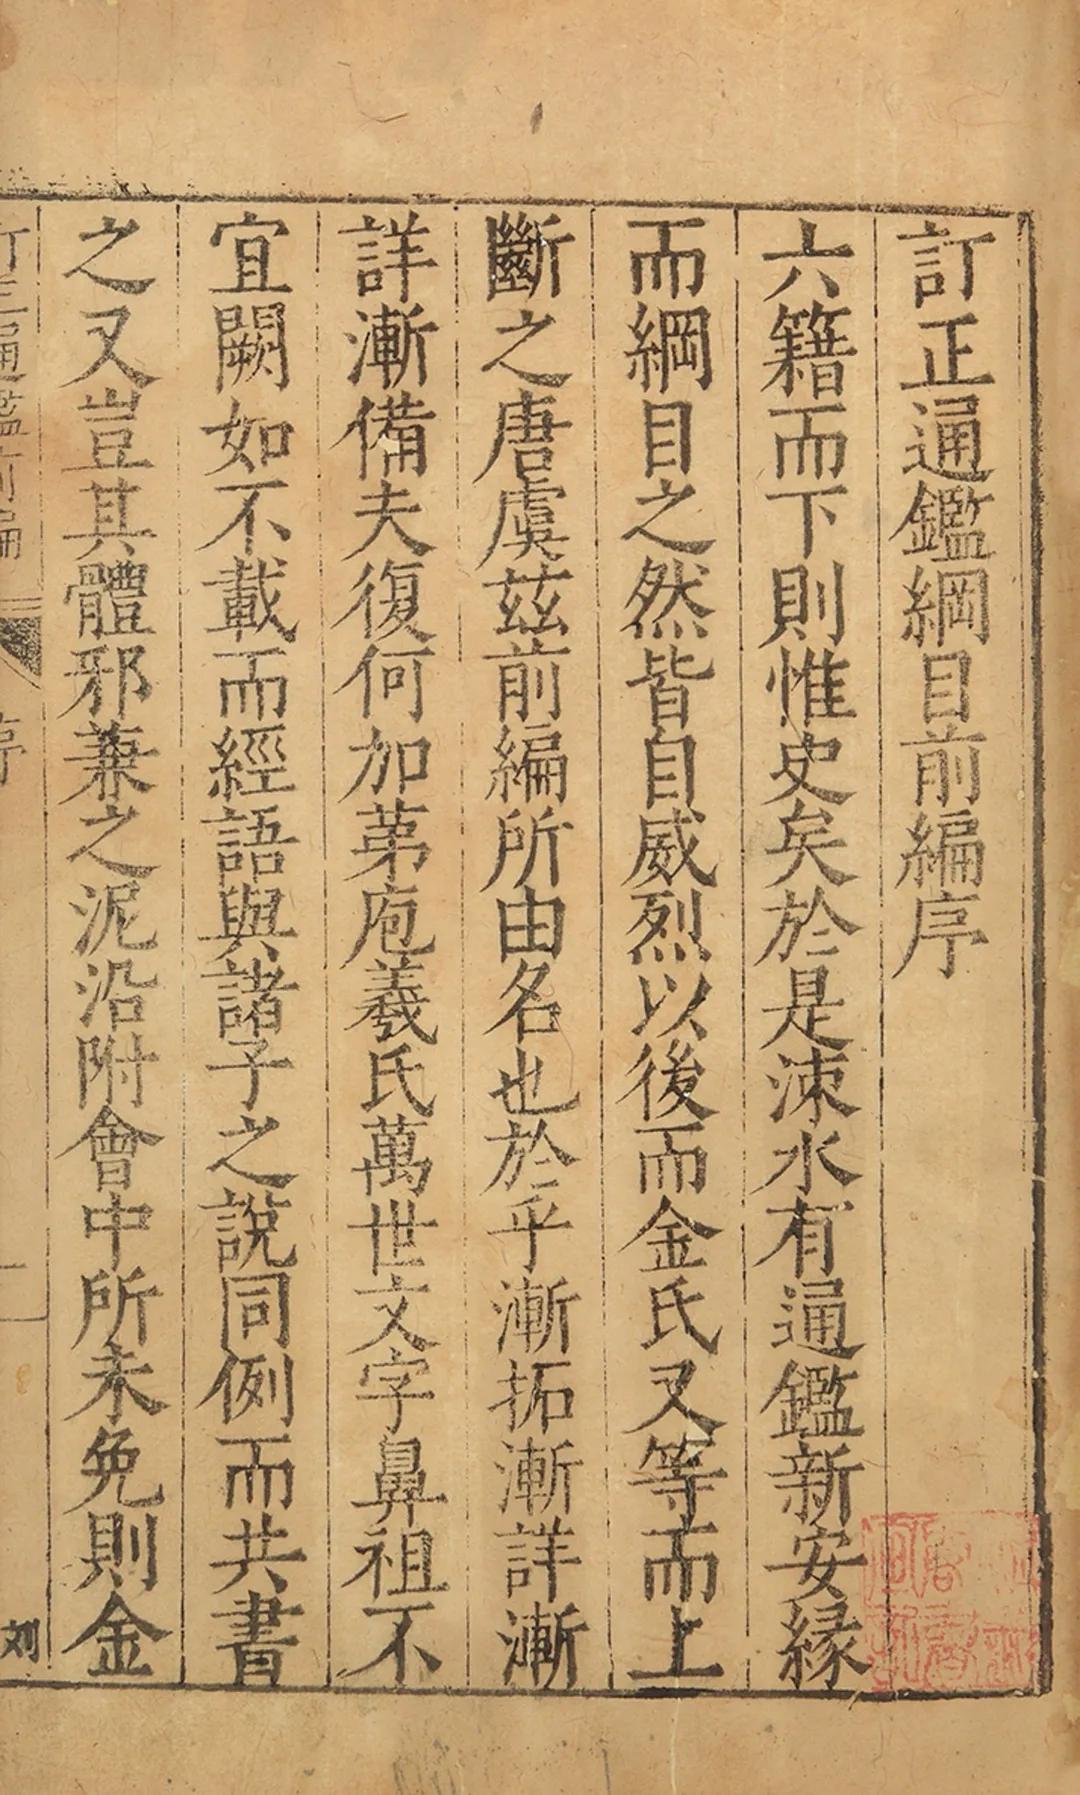 訂正通鑑綱目前編序
六籍而下則惟史矣於是涑水有通鑑新安緣
而綱目之然皆自威烈以後而金氏又等而上
斷之唐虞茲前編所由名也於乎漸拓漸詳漸
詳漸備夫復何加苐庖羲氏萬世文字鼻祖不
宜闕如不載而經語與諸子之說同例而共書
之又豈其體邪兼之泥沿附會中所未免則金
訂正通鑑前編
序
一
刘